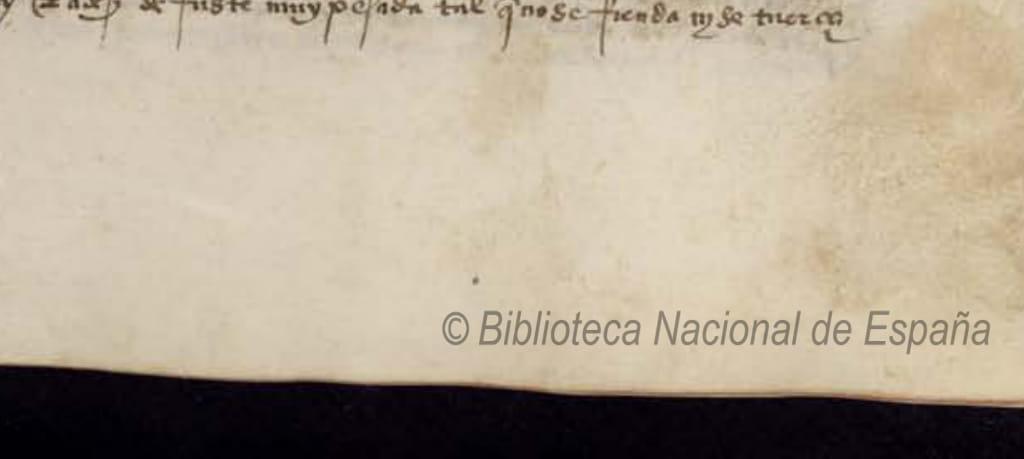 de fuste muy pesada tal q̃ no se fienda nj̃ se tuerca
© Biblioteca Nacional de España